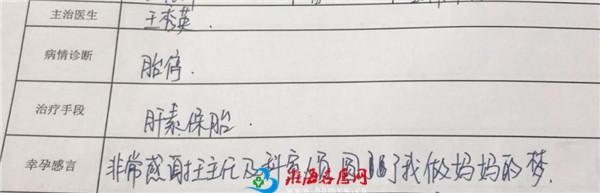 主治医生 王秀英
病情诊断 胎停.
治疗手段 肝素保胎.
幸孕感言 非常感谢王主任及科室 圆 了我做妈妈的梦.
淮海名医网